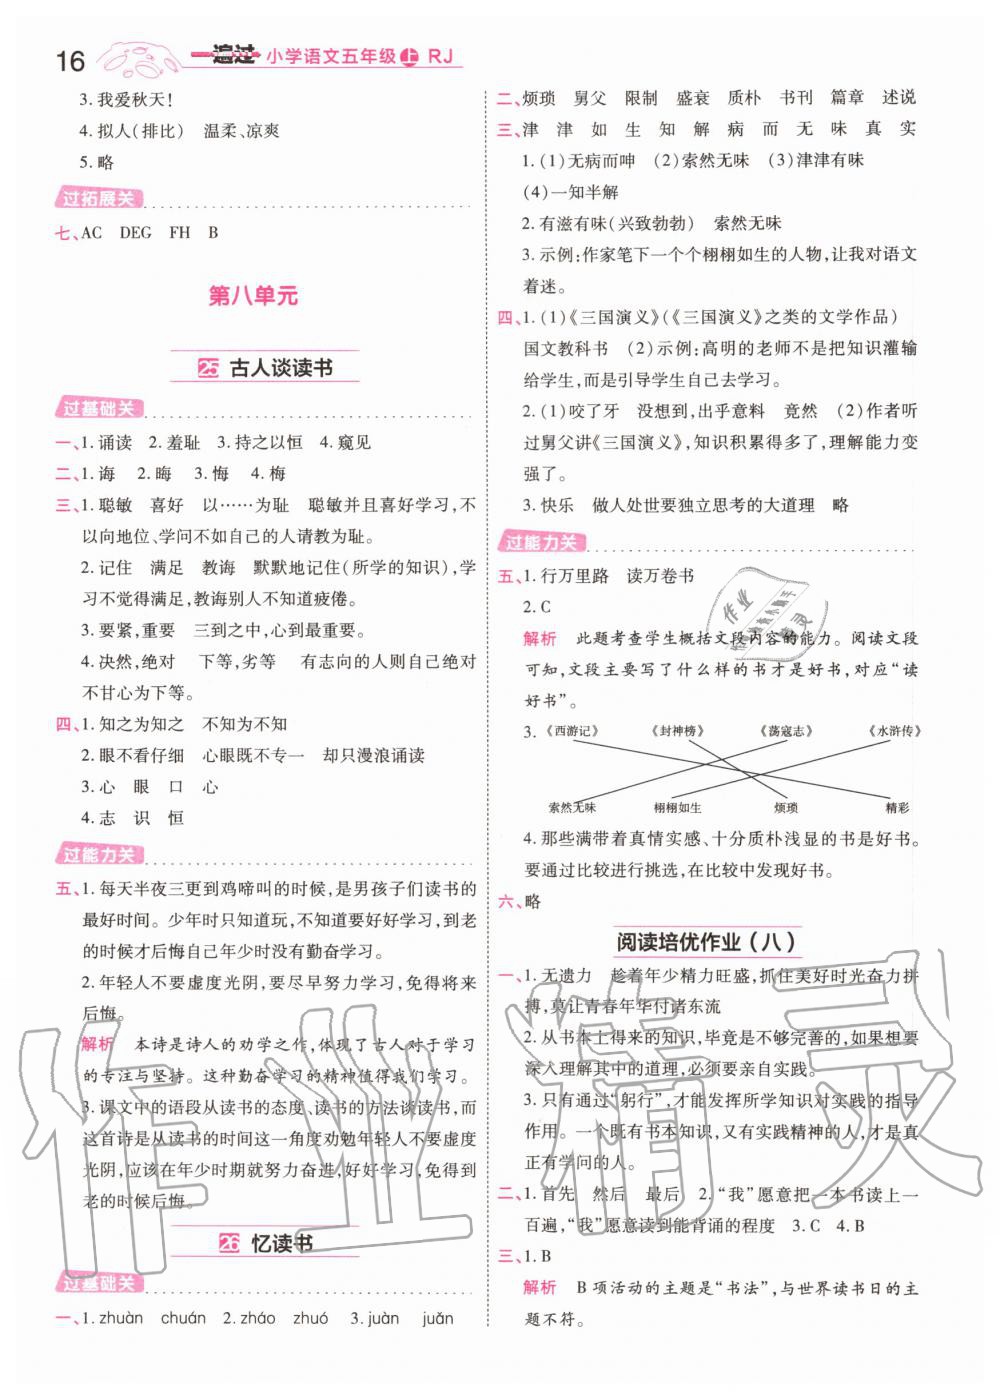 16 一遍过 小学语文五年级上 RJ
3.我爱秋天!
4.拟人(排比) 温柔、凉爽
5.略
过拓展关
七、AC DEG FH B
第八单元
25 古人谈读书
过基础关
一、1.诵读 2.羞耻 3.持之以恒 4.窥见
二、1.诲 2.晦 3.悔 4.梅
三、1.聪敏 喜好 以……为耻 聪敏并且喜好学习,不
以向地位、学问不如自己的人请教为耻。
2.记住 满足 教诲 默默地记住(所学的知识),学
习不觉得满足,教诲别人不知道疲倦。
3.要紧,重要 三到之中,心到最重要。
4.决然,绝对 下等,劣等 有志向的人则自己绝对
不甘心为下等。
四、1.知之为知之 不知为不知
2.眼不看仔细 心眼既不专一 却只漫浪诵读
3.心 眼 口 心
4.志 识 恒
过能力关
五、1.每天半夜三更到鸡啼叫的时候,是男孩子们读书的
最好时间。少年时只知道玩,不知道要好好学习,到老
的时候才后悔自己年少时没有勤奋学习。
2.年轻人不要虚度光阴,要尽早努力学习,免得将来
后悔。
解析 本诗是诗人的劝学之作,体现了古人对于学习
的专注与坚持。这种勤奋学习的精神值得我们学习。
3.课文中的语段从读书的态度、读书的方法谈读书,而
这首诗是从读书的时间这一角度劝勉年轻人不要虚度
光阴,应该在年少时期就努力奋进,好好学习,免得到
老的时候后悔。
26 忆读书
过基础关
一、1.zhuàn chuán 2.zháo zhuó 3.juàn juǎn
二、烦琐 舅父 限制 盛衰 质朴 书刊 篇章 述说
三、津 津 如 生 知 解 病 而 无 味 真 实
1.(1)无病而呻 (2)索然无味 (3)津津有味
(4)一知半解
2.有滋有味(兴致勃勃) 索然无味
3.示例:作家笔下一个个栩栩如生的人物,让我对语文
着迷。
四、1.(1)《三国演义》(《三国演义》之类的文学作品)
国文教科书 (2)示例:高明的老师不是把知识灌输
给学生,而是引导学生自己去学习。
2.(1)咬了牙 没想到,出乎意料 竟然 (2)作者听
过舅父讲《三国演义》,知识积累得多了,理解能力变
强了。
3.快乐 做人处世要独立思考的大道理 略
过能力关
五、1.行万里路 读万卷书
2.C
解析 此题考查学生概括文段内容的能力。阅读文段
可知,文段主要写了什么样的书才是好书,对应“读
好书”。
3.《西游记》 《封神榜》 《荡寇志》 《水浒传》
索然无味 栩栩如生 烦琐 精彩
4.那些满带着真情实感、十分质朴浅显的书是好书。
要通过比较进行挑选,在比较中发现好书。
六、略
阅读培优作业(八)
一、1.无遗力 趁着年少精力旺盛,抓住美好时光奋力拼
搏,莫让青春年华付诸东流
2.从书本上得来的知识,毕竟是不够完善的,如果想要
深入理解其中的道理,必须要亲自实践。
3.只有通过“躬行”,才能发挥所学知识对实践的指导
作用。一个既有书本知识,又有实践精神的人,才是真
正有学问的人。
二、1.首先 然后 最后 2.“我”愿意把一本书读上一
百遍,“我”愿意读到能背诵的程度 3.C 4.B
三、1.B
解析 B项活动的主题是“书法”,与世界读书日的主
题不符。
作业精灵